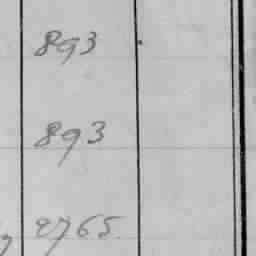 893
893
2765